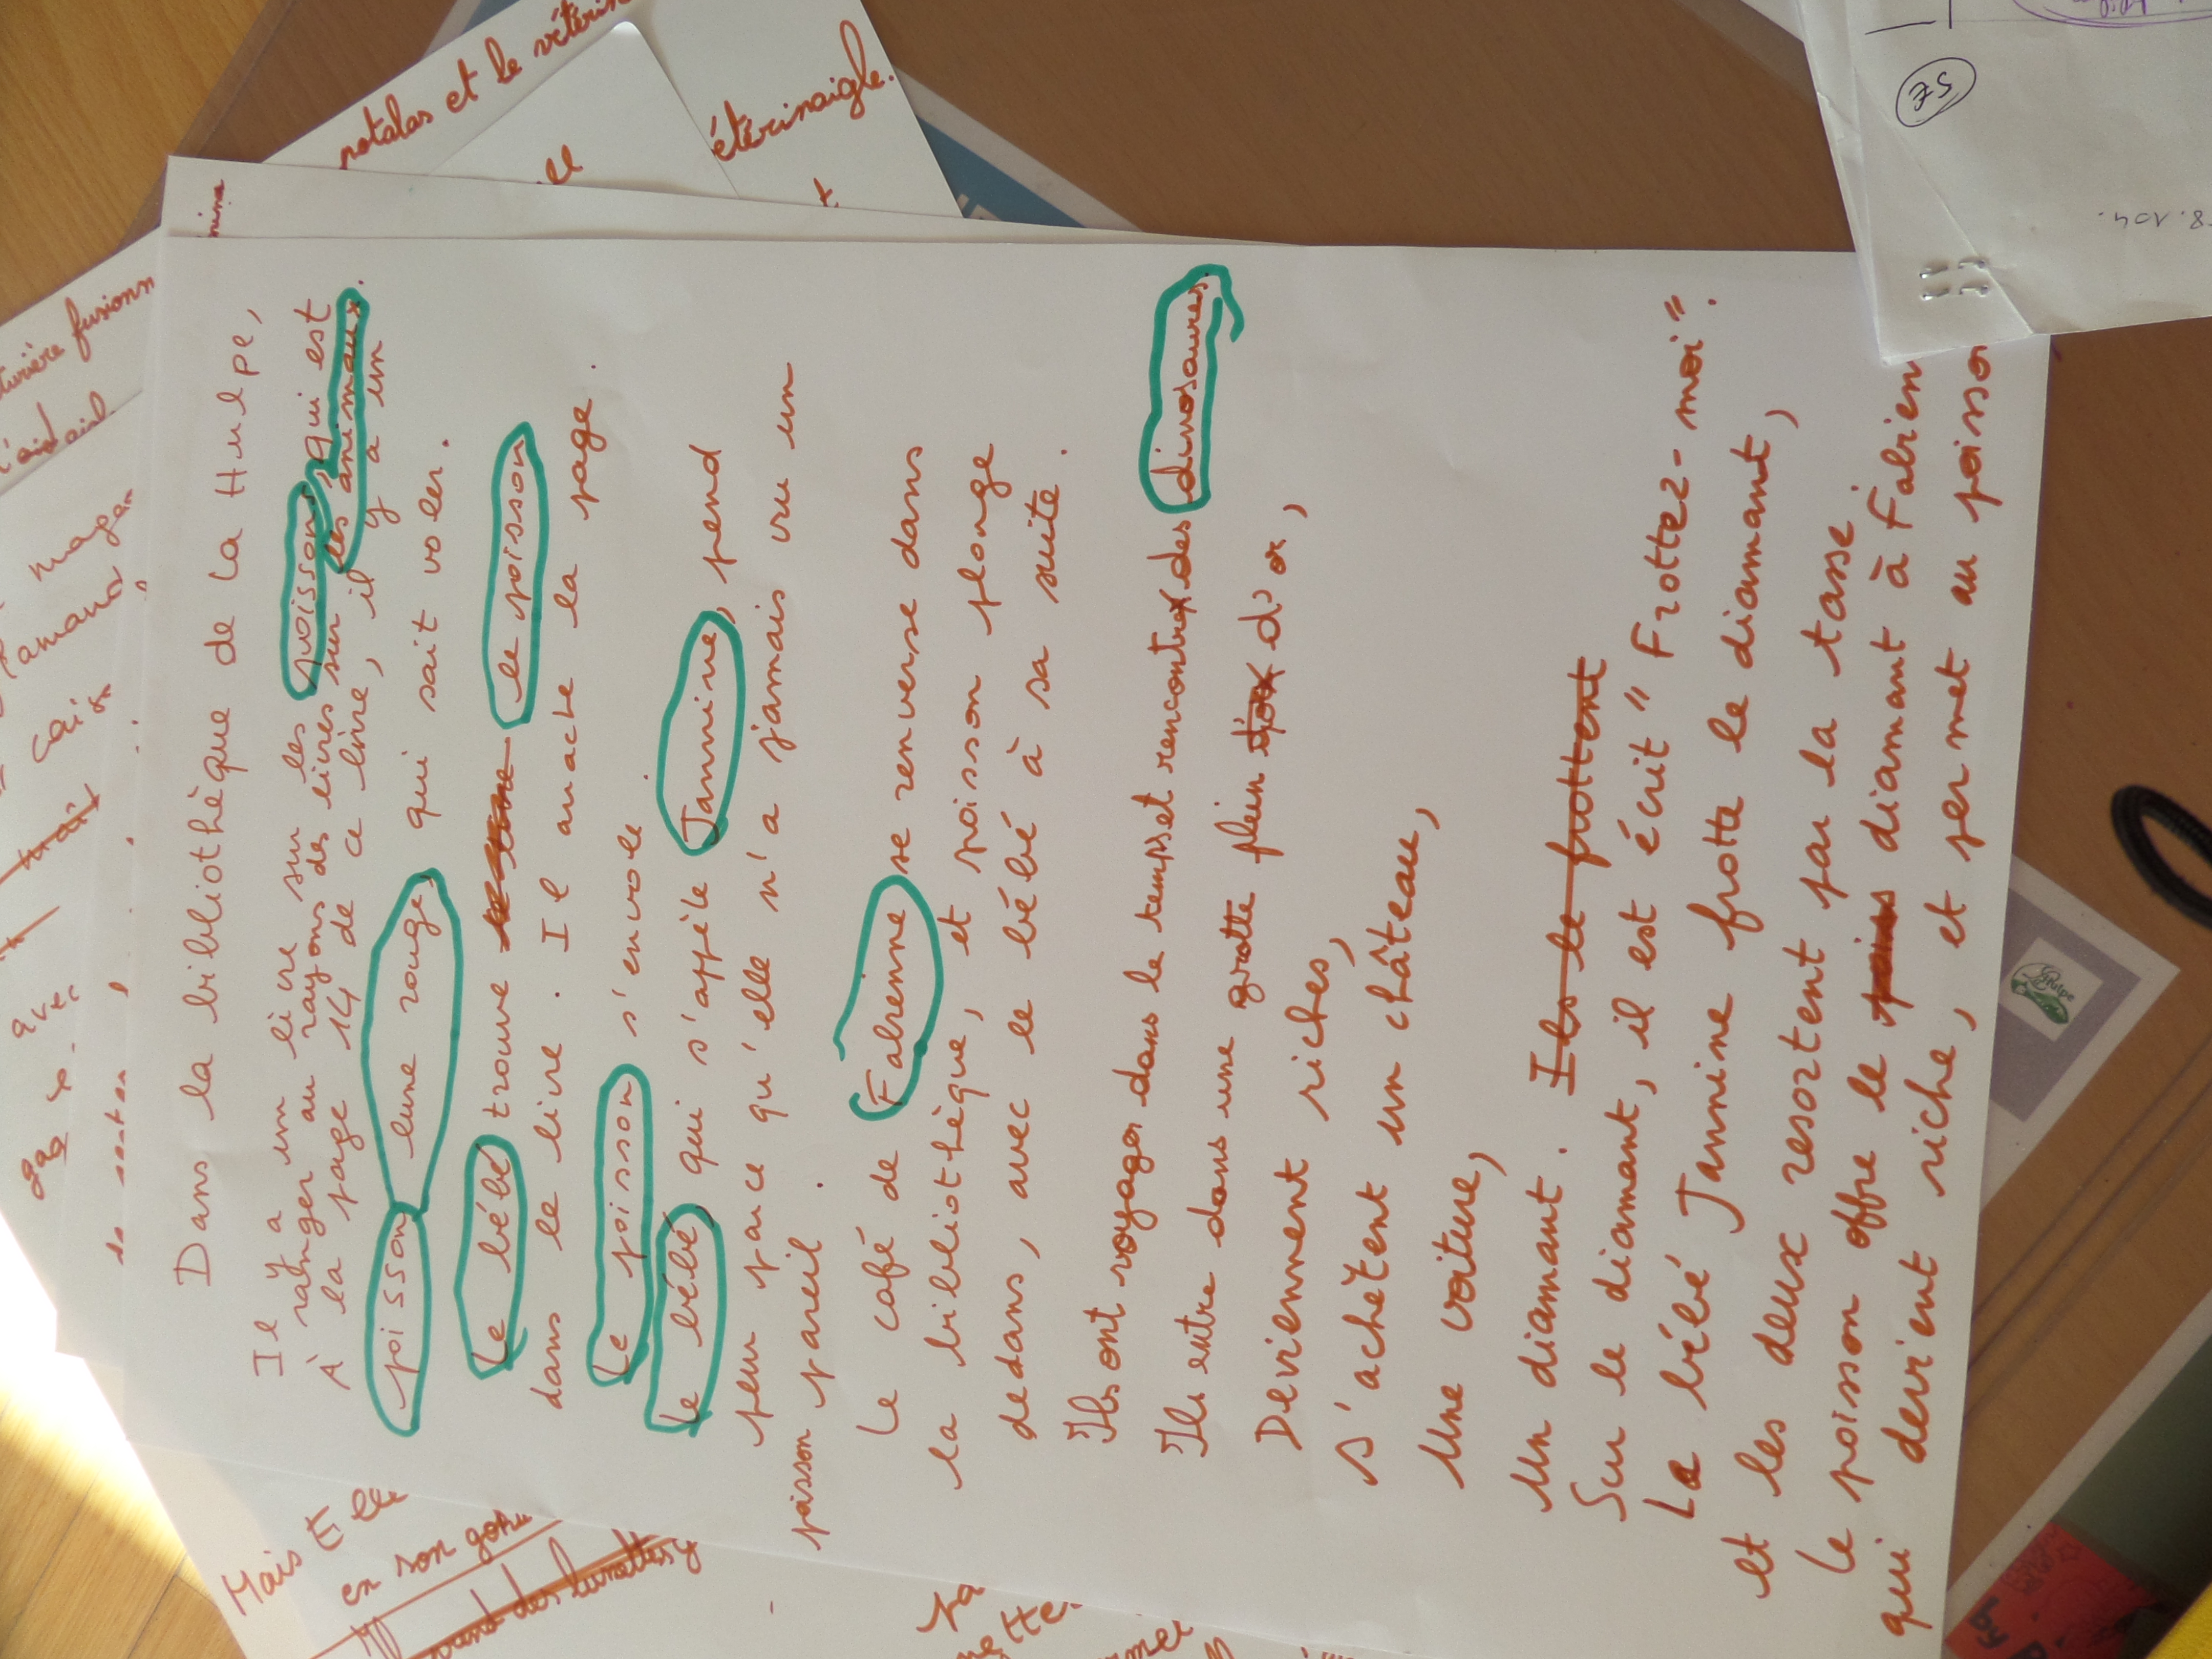 Dans la bibliothèque de La Hulpe,
Il y a un livre sur les poissons, qui est
à ranger au rayons des livres sur les animaux.
À la page 14 de ce livre, il y a un
poisson lune rouge, qui sait voler.
Le bébé trouve le poisson
dans le livre. Il arrache la page.
Le poisson s'envole.
Le bébé, qui s'appèle Jannine, pend
peur parce qu'elle n'a jamais vu un
poisson pareil.
Le café de Fabienne se renverse dans
la bibliothèque, et poisson plonge
dedans, avec le bébé à sa suite.
Ils ont voyager dans le temps et rencontrer des dinosaures,
Ils entre dans une grotte plein d'or,
Deviennent riches,
s'achètent un château,
Une voiture,
Un diamant. Ils le frottent
Sur le diamant, il est écrit "Frottez-moi".
La bébé Jannine frotte le diamant,
et les deux resortent par la tasse
Le poisson offre le diamant à Fabien
qui devient riche, et permet au poisso
notalas et le vétérin
étérinaigle.
ell
turière fusionn
magan
avec
Mais Elle
en son
5€
8.104.
by